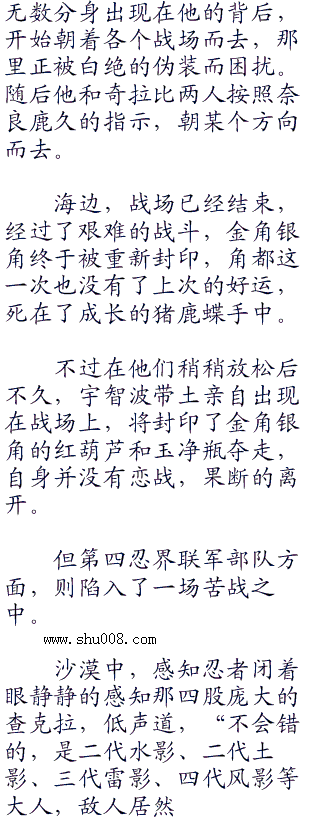 无数分身出现在他的背后，
开始朝着各个战场而去，那
里正被白绝的伪装而困扰。
随后他和奇拉比两人按照奈
良鹿久的指示，朝某个方向
而去。
海边，战场已经结束，
经过了艰难的战斗，金角银
角终于被重新封印，角都这
一次也没有了上次的好运，
死在了成长的猪鹿蝶手中。
不过在他们稍稍放松后
不久，宇智波带土亲自出现
在战场上，将封印了金角银
角的红葫芦和玉净瓶夺走，
自身并没有恋战，果断的离
开。
但第四忍界联军部队方
面，则陷入了一场苦战之
中。
www.shu008.com
沙漠中，感知忍者闭着
眼静静的感知那四股庞大的
查克拉，低声道，“不会错
的，是二代水影、二代土
影、三代雷影、四代风影等
大人，敌人居然